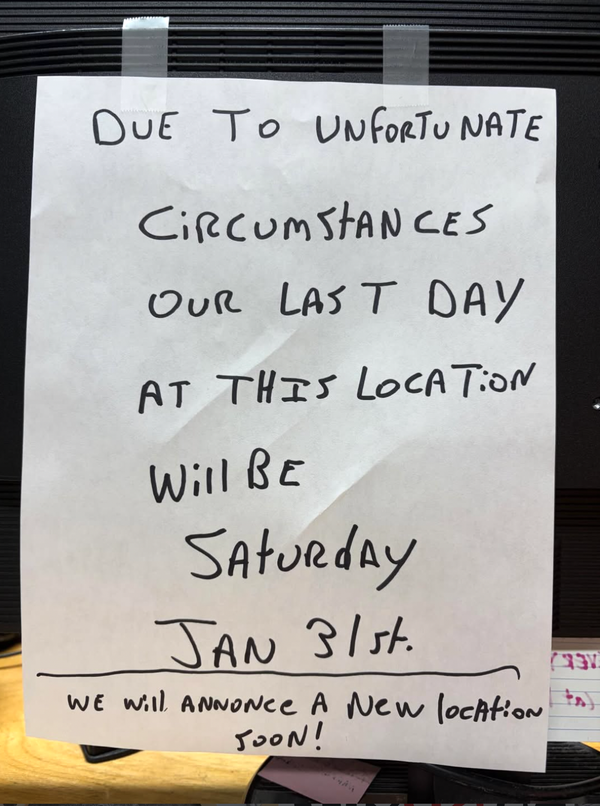 DUE TO UNFORTUNATE
CiRCUMStANCES
OUR LAST DAY
AT THIS LOCATiON
Will BE
SAtURdAY
JAN 31st.
WE Will ANNONCE A NEW locAtioN
SOON!